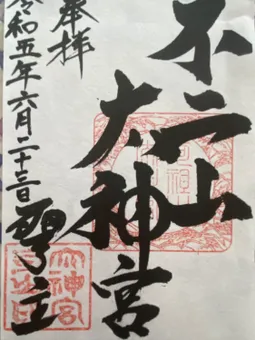 不二山
大神宮
奉拝
令和五年六月二十三日